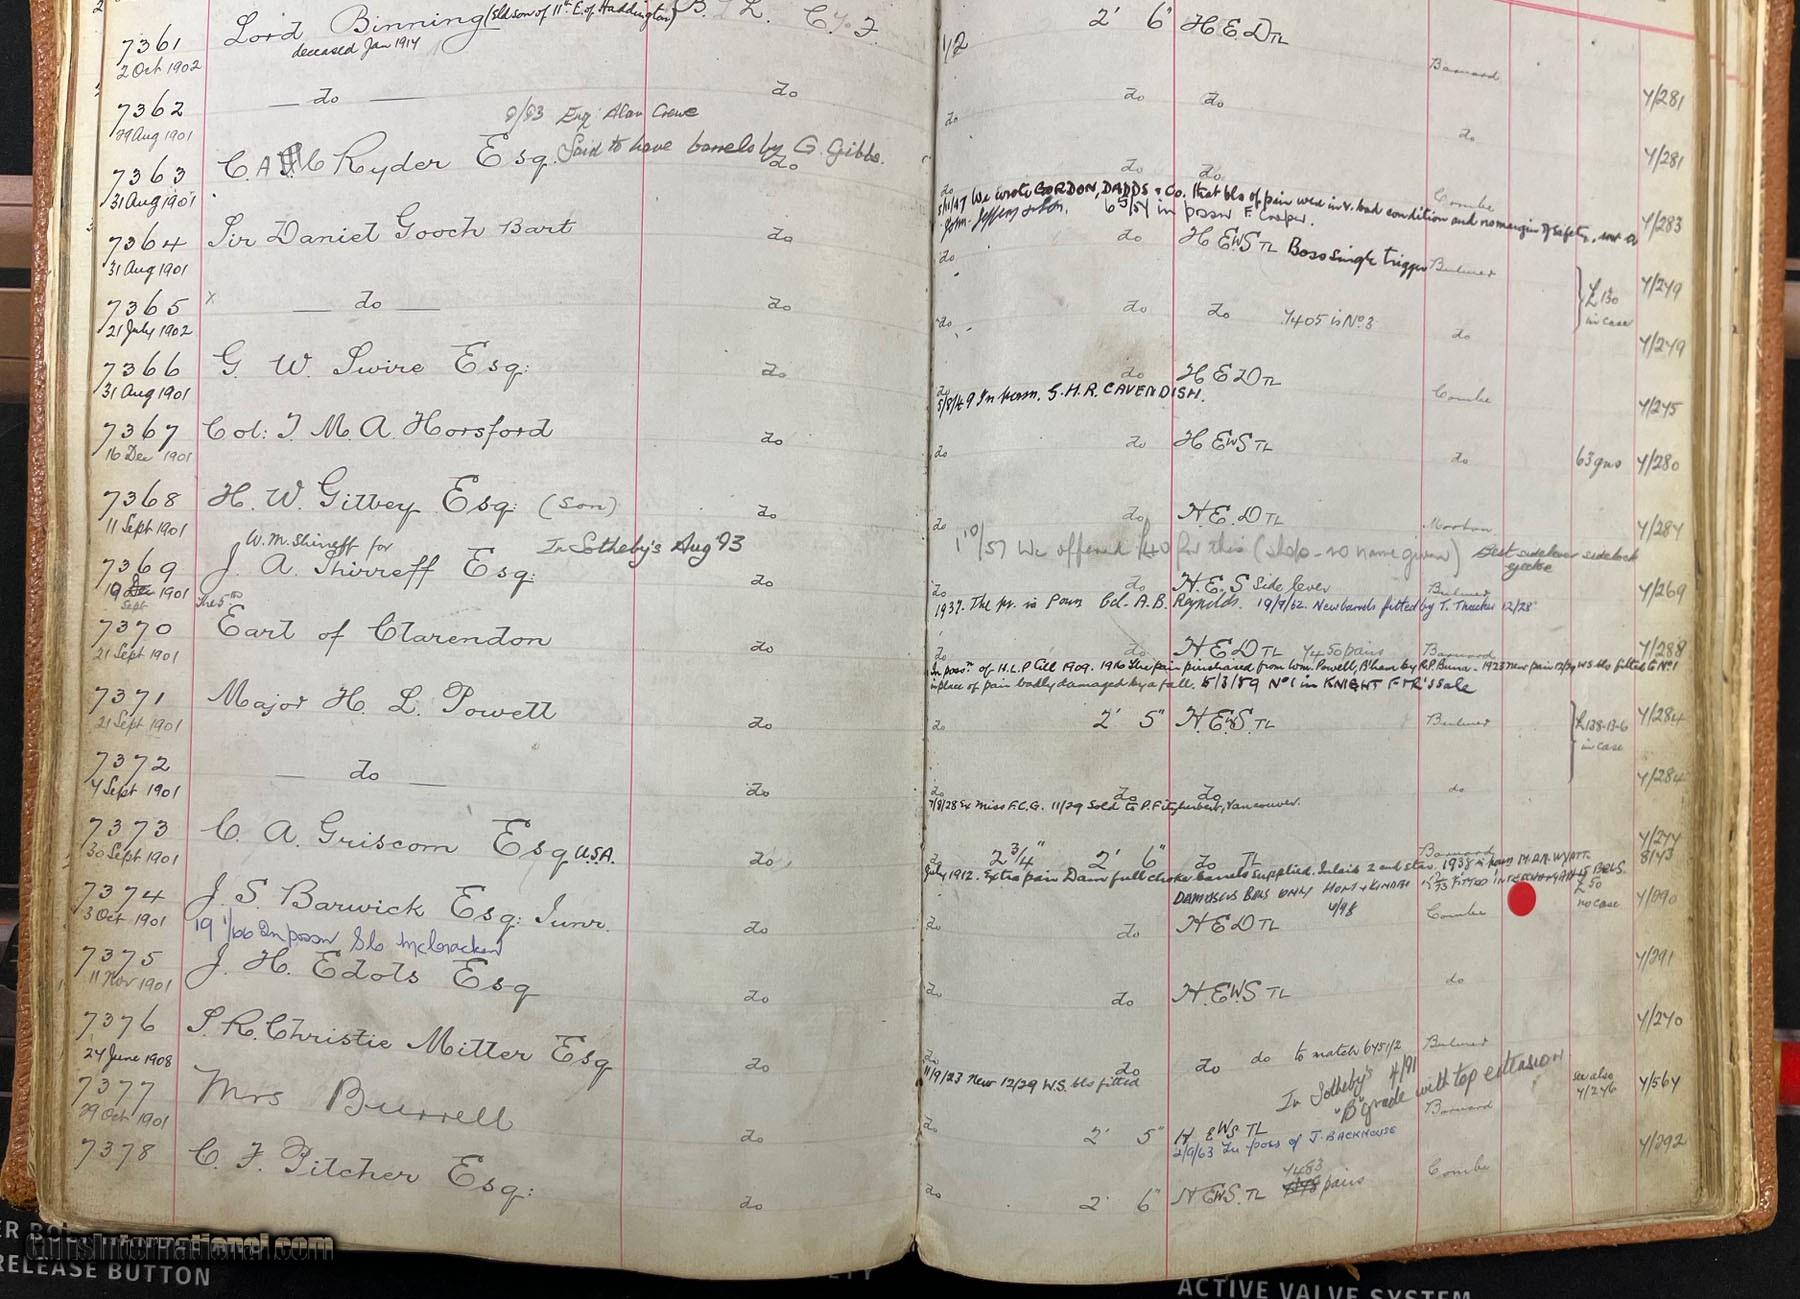 7361 Lord Binning (Eldson of 11th E. of Haddington) B. T L. 1/2 2' 6" H.E.D TL
deceased Jan 1914
2 Oct 1902 Barnard
7362 — do — do do do do 4/281
29 Aug 1901 do
9/83 Enq: Alan Crewe
7363 C. A Ryder Esq. Said to have barrels by G. Gibbs. do do do do 4/281
31 Aug 1901 Combe
5/11/47 We wrote GORDON, DADDS & Co. that bls of pair were in v. bad condition and no margin of safety,
in possn F. Cooper.
7364 Sir Daniel Gooch Bart do do do H EWS TL Boss single trigger Bulmer 4/283
31 Aug 1901
7365 x — do — do do do do 7405 is No. 3 do £130 in case 4/249
21 July 1902
7366 G. W. Swire Esq: do do do H E D TL Combe 4/249
31 Aug 1901
5/8/49 In possn. S.H.R. CAVENDISH.
7367 Col: T. M. A. Horsford do do do H EWS TL do 63 gns 4/245
16 Dec 1901
7368 H. W. Gilbey Esq: (son) do do do H E. D TL 4/280
11 Sept 1901
In Sotheby's Aug '93
W.M. Shirreff for
10/57 We offered £40 for this (shop - no name given) Best sidelever sidelock ejector
7369 J. A. Shirreff Esq: do do do H. E. S Side lever Bulmer 4/284
10 Sept 1901
1937. The pr. in possn Col. A. B. Reynolds. 19/9/62. New barrels fitted by T. Thacker 12/28"
the 5th
7370 Earl of Clarendon do do do H E D TL 7450 pairs Barnard 4/269
21 Sept 1901
In possn of H.L.P till 1909. 1910 The pair purchased from Wm. Powell, B'ham by 1923 new pair 12/29 W.S. bls fitted to No 1
in place of pair badly damaged by a fall. 5/3/89 No 1 in KNIGHT F & R's Sale
7371 Major H. L. Powell do do 2' 5" H. EWS. TL Bulmer £138-13-6 in case 4/288
21 Sept 1901
7372 — do — do do do do do 4/284
4 Sept 1901
7/8/28 Ex Miss F.C.G. 11/29 Sold to P. Fitzherbert, Vancouver.
7373 C. A. Griscom Esq U.S.A. do do 2 3/4" 2' 6" do TL Barnard 4/284
30 Sept 1901
July 1912. Extra pair Dam full choke barrels supplied. Inlaid 2 and star. 1938 in possn WYATT.
DAMASCUS BRLS ONLY HOLT & KINDER 4/98
£50 no case
7374 J. S. Barwick Esq: Junr. do do do H E D TL Combe 4/274 8/43
3 Oct 1901
19 1/66 In possn McCracken
7375 J. H. Edols Esq do do do H. EWS TL do 4/090
11 Nov 1901
7376 S. R. Christie Miller Esq do do do do do to match 6451/2 Bulmer 4/291
24 June 1908
11/9/23 New 12/29 W.S. bls fitted
In Sotheby's 4/91
"B" grade with top extension
7377 Mrs Burrell do do 2' 5" H EWS TL Barnard see also 4/246 4/240
29 Oct 1901
2/9/63 In poss of J. BACKHOUSE
4/564
7378 C. F. Pitcher Esq: do do 2' 6" H EWS. TL 7483 pairs Combe 4/292
GunsInternational.com
RELEASE BUTTON
ACTIVE VALVE SYSTEM